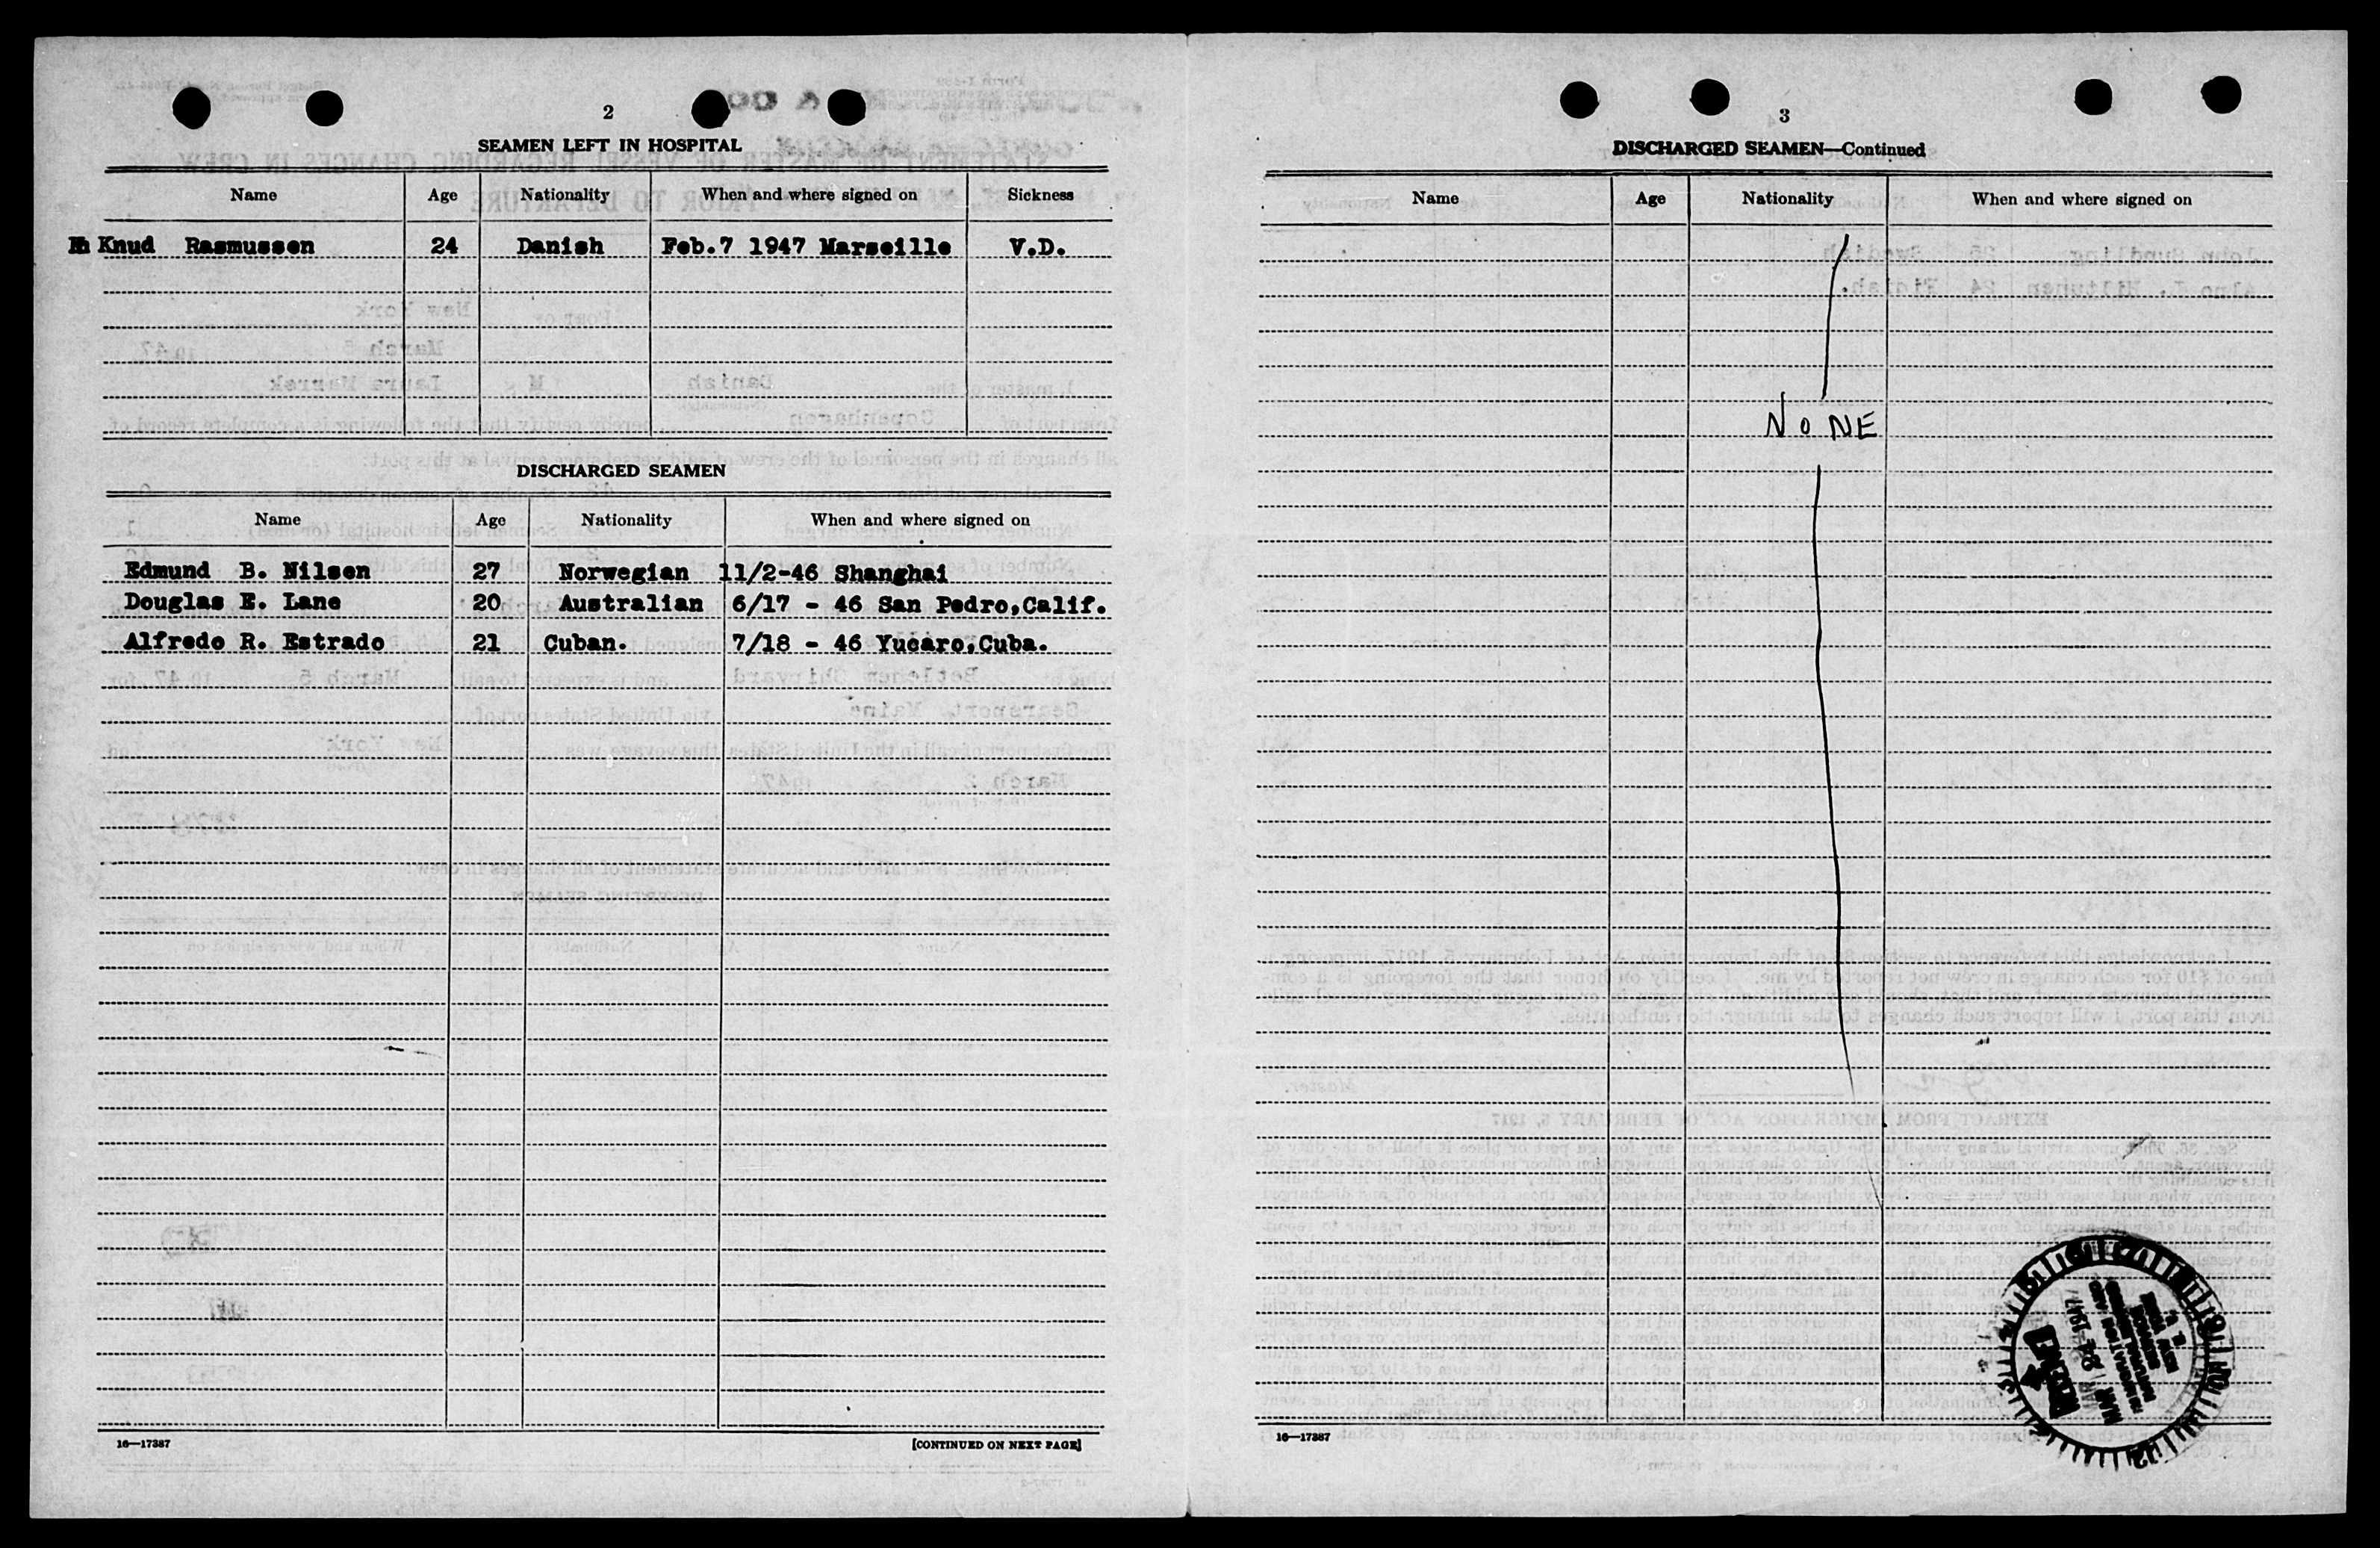 2
SEAMEN LEFT IN HOSPITAL
Name Age Nationality When and where signed on Sickness
Knud Rasmussen 24 Danish Feb.7 1947 Marseille V.D.
DISCHARGED SEAMEN
Name Age Nationality When and where signed on
Edmund B. Nilsen 27 Norwegian 11/2-46 Shanghai
Douglas E. Lane 20 Australian 6/17 - 46 San Pedro,Calif.
Alfredo R. Estrado 21 Cuban. 7/18 - 46 Yucaro,Cuba.
16—17387 [CONTINUED ON NEXT PAGE]
3
DISCHARGED SEAMEN—Continued
Name Age Nationality When and where signed on
NONE
16—17387